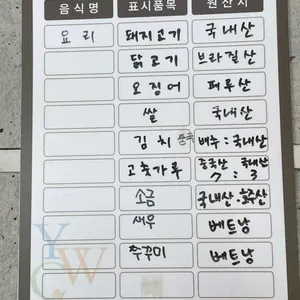 음식명 표시품목 원산지
요리 돼지고기 국내산
닭고기 브라질산
오징어 페루산
쌀 국내산
김치 중국 배추:국내산
고춧가루 중국산 : 국내산
7 : 3
소금 국내산:호주산
새우 베트낭
쭈꾸미 베트낭
YGW